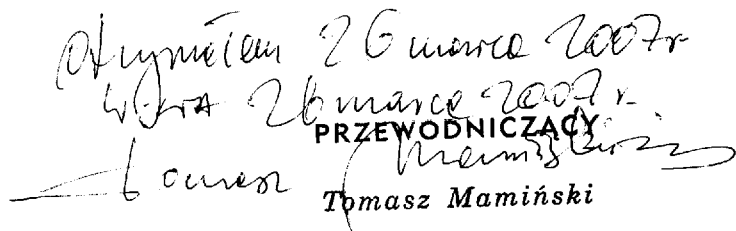 Otrzymałem 26 marca 2007r
26 marca 2007 r.
PRZEWODNICZĄCY
Tomasz Mamiński
Tomasz Mamiński